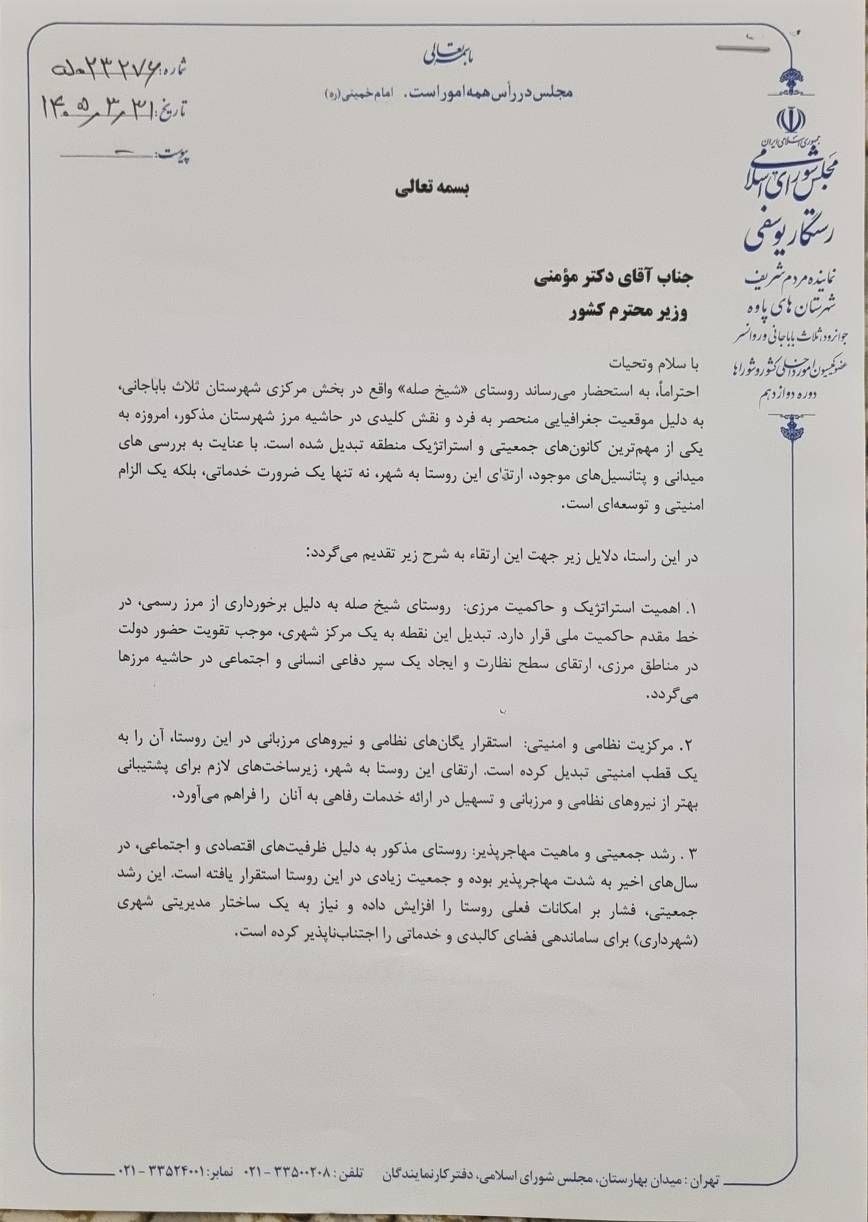 باسمه تعالی
مجلس در رأس همه امور است. امام خمینی (ره)
شماره: ۵۰۲۳۲۷۶
تاریخ: ۱۴۰۵,۳,۳۱
پیوست: -
جمهوری اسلامی ایران
مجلس شورای اسلامی
رستگار یوسفی
نماینده مردم شریف
شهرستان های پاوه
جوانرود، ثلاث باباجانی و روانسر
عضو کمیسیون امور داخلی کشور و شوراها
دوره دوازدهم
بسمه تعالی
جناب آقای دکتر مؤمنی
وزیر محترم کشور
با سلام وتحیات
احتراماً، به استحضار می‌رساند روستای «شیخ صله» واقع در بخش مرکزی شهرستان ثلاث باباجانی،
به دلیل موقعیت جغرافیایی منحصر به فرد و نقش کلیدی در حاشیه مرز شهرستان مذکور، امروزه به
یکی از مهم‌ترین کانون‌های جمعیتی و استراتژیک منطقه تبدیل شده است. با عنایت به بررسی های
میدانی و پتانسیل‌های موجود، ارتقای این روستا به شهر، نه تنها یک ضرورت خدماتی، بلکه یک الزام
امنیتی و توسعه‌ای است.
در این راستا، دلایل زیر جهت این ارتقاء به شرح زیر تقدیم می‌گردد:
۱. اهمیت استراتژیک و حاکمیت مرزی: روستای شیخ صله به دلیل برخورداری از مرز رسمی، در
خط مقدم حاکمیت ملی قرار دارد. تبدیل این نقطه به یک مرکز شهری، موجب تقویت حضور دولت
در مناطق مرزی، ارتقای سطح نظارت و ایجاد یک سپر دفاعی انسانی و اجتماعی در حاشیه مرزها
می‌گردد.
۲. مرکزیت نظامی و امنیتی: استقرار یگان‌های نظامی و نیروهای مرزبانی در این روستا، آن را به
یک قطب امنیتی تبدیل کرده است. ارتقای این روستا به شهر، زیرساخت‌های لازم برای پشتیبانی
بهتر از نیروهای نظامی و مرزبانی و تسهیل در ارائه خدمات رفاهی به آنان را فراهم می‌آورد.
۳. رشد جمعیتی و ماهیت مهاجرپذیر: روستای مذکور به دلیل ظرفیت‌های اقتصادی و اجتماعی، در
سال‌های اخیر به شدت مهاجرپذیر بوده و جمعیت زیادی در این روستا استقرار یافته است. این رشد
جمعیتی، فشار بر امکانات فعلی روستا را افزایش داده و نیاز به یک ساختار مدیریتی شهری
(شهرداری) برای ساماندهی فضای کالبدی و خدماتی را اجتناب‌ناپذیر کرده است.
تهران : میدان بهارستان، مجلس شورای اسلامی، دفتر کار نمایندگان تلفن : ۳۳۵۰۰۲۰۸ - ۰۲۱ نمابر: ۳۳۵۲۴۰۰۱ - ۰۲۱